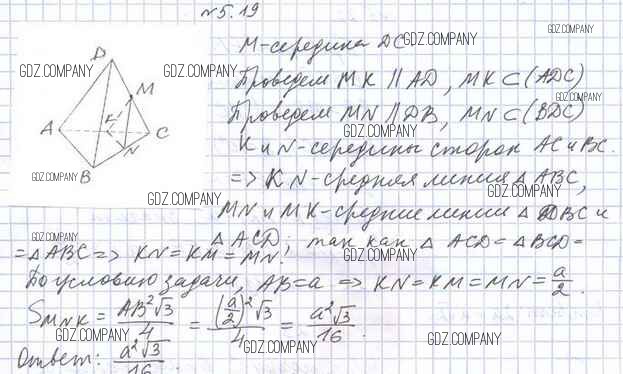 №5.19
М-середина DC
GDZ.COMPANY
GDZ.COMPANY
D
GDZ.COMPANY GDZ.COMPANY
M
Проведем MK || AD, MK ⊂ (ADC)
GDZ.COMPANY
Проведем MN || DB, MN ⊂ (BDC)
GDZ.COMPANY
A K C
N
B
K и N-середины сторон AC и BC.
GDZ.COMPANY
=> KN-средняя линия △ABC,
GDZ.COMPANY
GDZ.COMPANY
MN и MK-средние линии △ DBC и
GDZ.COMPANY
△ ACD; так как △ ACD = △ BCD =
= △ABC => KN = KM = MN.
GDZ.COMPANY
По условию задачи, AB = a => KN = KM = MN = a/2.
GDZ.COMPANY
S MNK = AB²√3/4 = (a/2)²√3/4 = a²√3/16.
GDZ.COMPANY GDZ.COMPANY GDZ.COMPANY
Ответ: a²√3/16